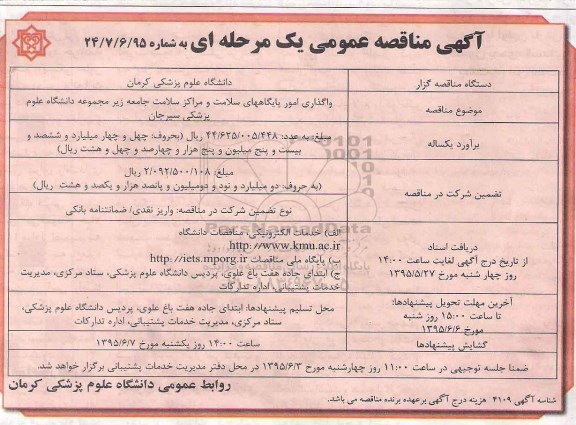 آگهی مناقصه عمومی یک مرحله ای به شماره ۲۴/۷/۶/۹۵
دستگاه مناقصه گزار
دانشگاه علوم پزشکی کرمان
موضوع مناقصه
واگذاری امور پایگاههای سلامت و مراکز سلامت جامعه زیر مجموعه دانشگاه علوم
پزشکی سیرجان
برآورد یکساله
مبلغ: به عدد: ۴۴/۶۲۵/۰۰۵/۴۴۸ ریال (بحروف: چهل و چهار میلیارد و ششصد و
بیست و پنج میلیون و پنج هزار و چهارصد و چهل و هشت ریال)
تضمین شرکت در مناقصه
مبلغ: ۲/۰۹۲/۵۰۰/۱۰۸ ریال
(به حروف: دو میلیارد و نود و دومیلیون و پانصد هزار و یکصد و هشت ریال)
نوع تضمین شرکت در مناقصه: واریز نقدی/ ضمانتنامه بانکی
دریافت اسناد
از تاریخ درج آگهی لغایت ساعت ۱۴:۰۰
روز چهار شنبه مورخ ۱۳۹۵/۵/۲۷
الف) خدمات الکترونیکی، مناقصات دانشگاه
http://www.kmu.ac.ir
ب) پایگاه ملی مناقصات http://iets.mporg.ir
ج) ابتدای جاده هفت باغ علوی، پردیس دانشگاه علوم پزشکی، ستاد مرکزی، مدیریت
خدمات پشتیبانی، اداره تدارکات
آخرین مهلت تحویل پیشنهادها:
تا ساعت ۱۵:۰۰ روز شنبه
مورخ ۱۳۹۵/۶/۶
محل تسلیم پیشنهادها: ابتدای جاده هفت باغ علوی، پردیس دانشگاه علوم پزشکی،
ستاد مرکزی، مدیریت خدمات پشتیبانی، اداره تدارکات
گشایش پیشنهادها
ساعت ۱۴:۰۰ روز یکشنبه مورخ ۱۳۹۵/۶/۷
ضمنا جلسه توجیهی در ساعت ۱۱:۰۰ روز چهارشنبه مورخ ۱۳۹۵/۶/۳ در محل دفتر مدیریت خدمات پشتیبانی برگزار خواهد شد.
روابط عمومی دانشگاه علوم پزشکی کرمان
شناسه آگهی ۴۱۰۹ هزینه درج آگهی برعهده برنده مناقصه می باشد.